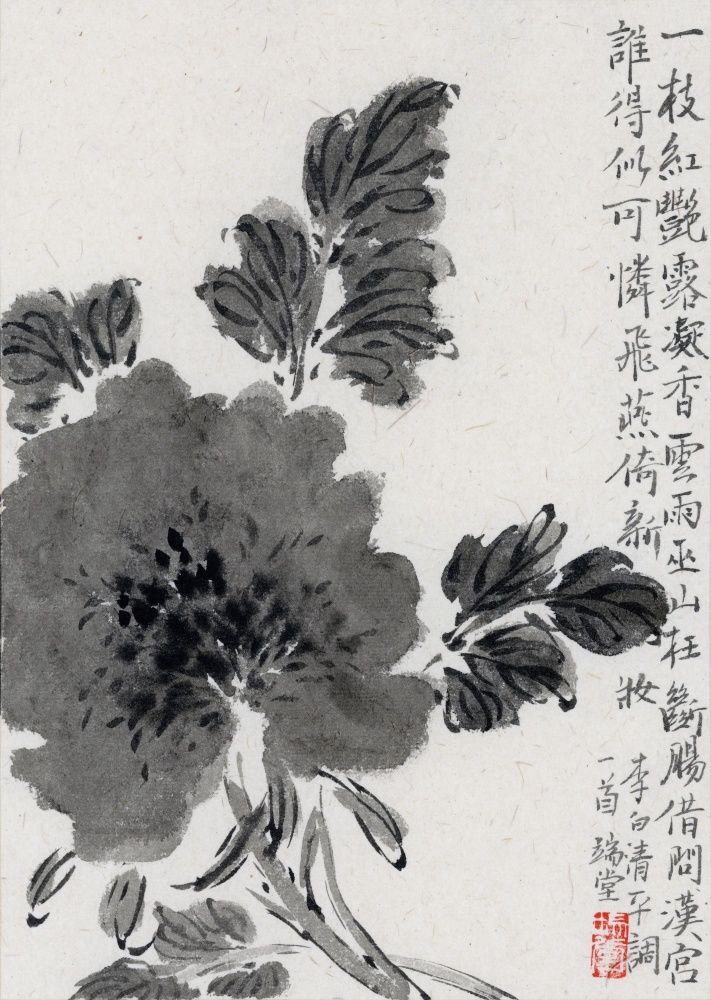 一枝紅艷露凝香雲雨巫山枉斷腸借問漢宮
誰得似可憐飛燕倚新妝
李白清平調
一首 端堂